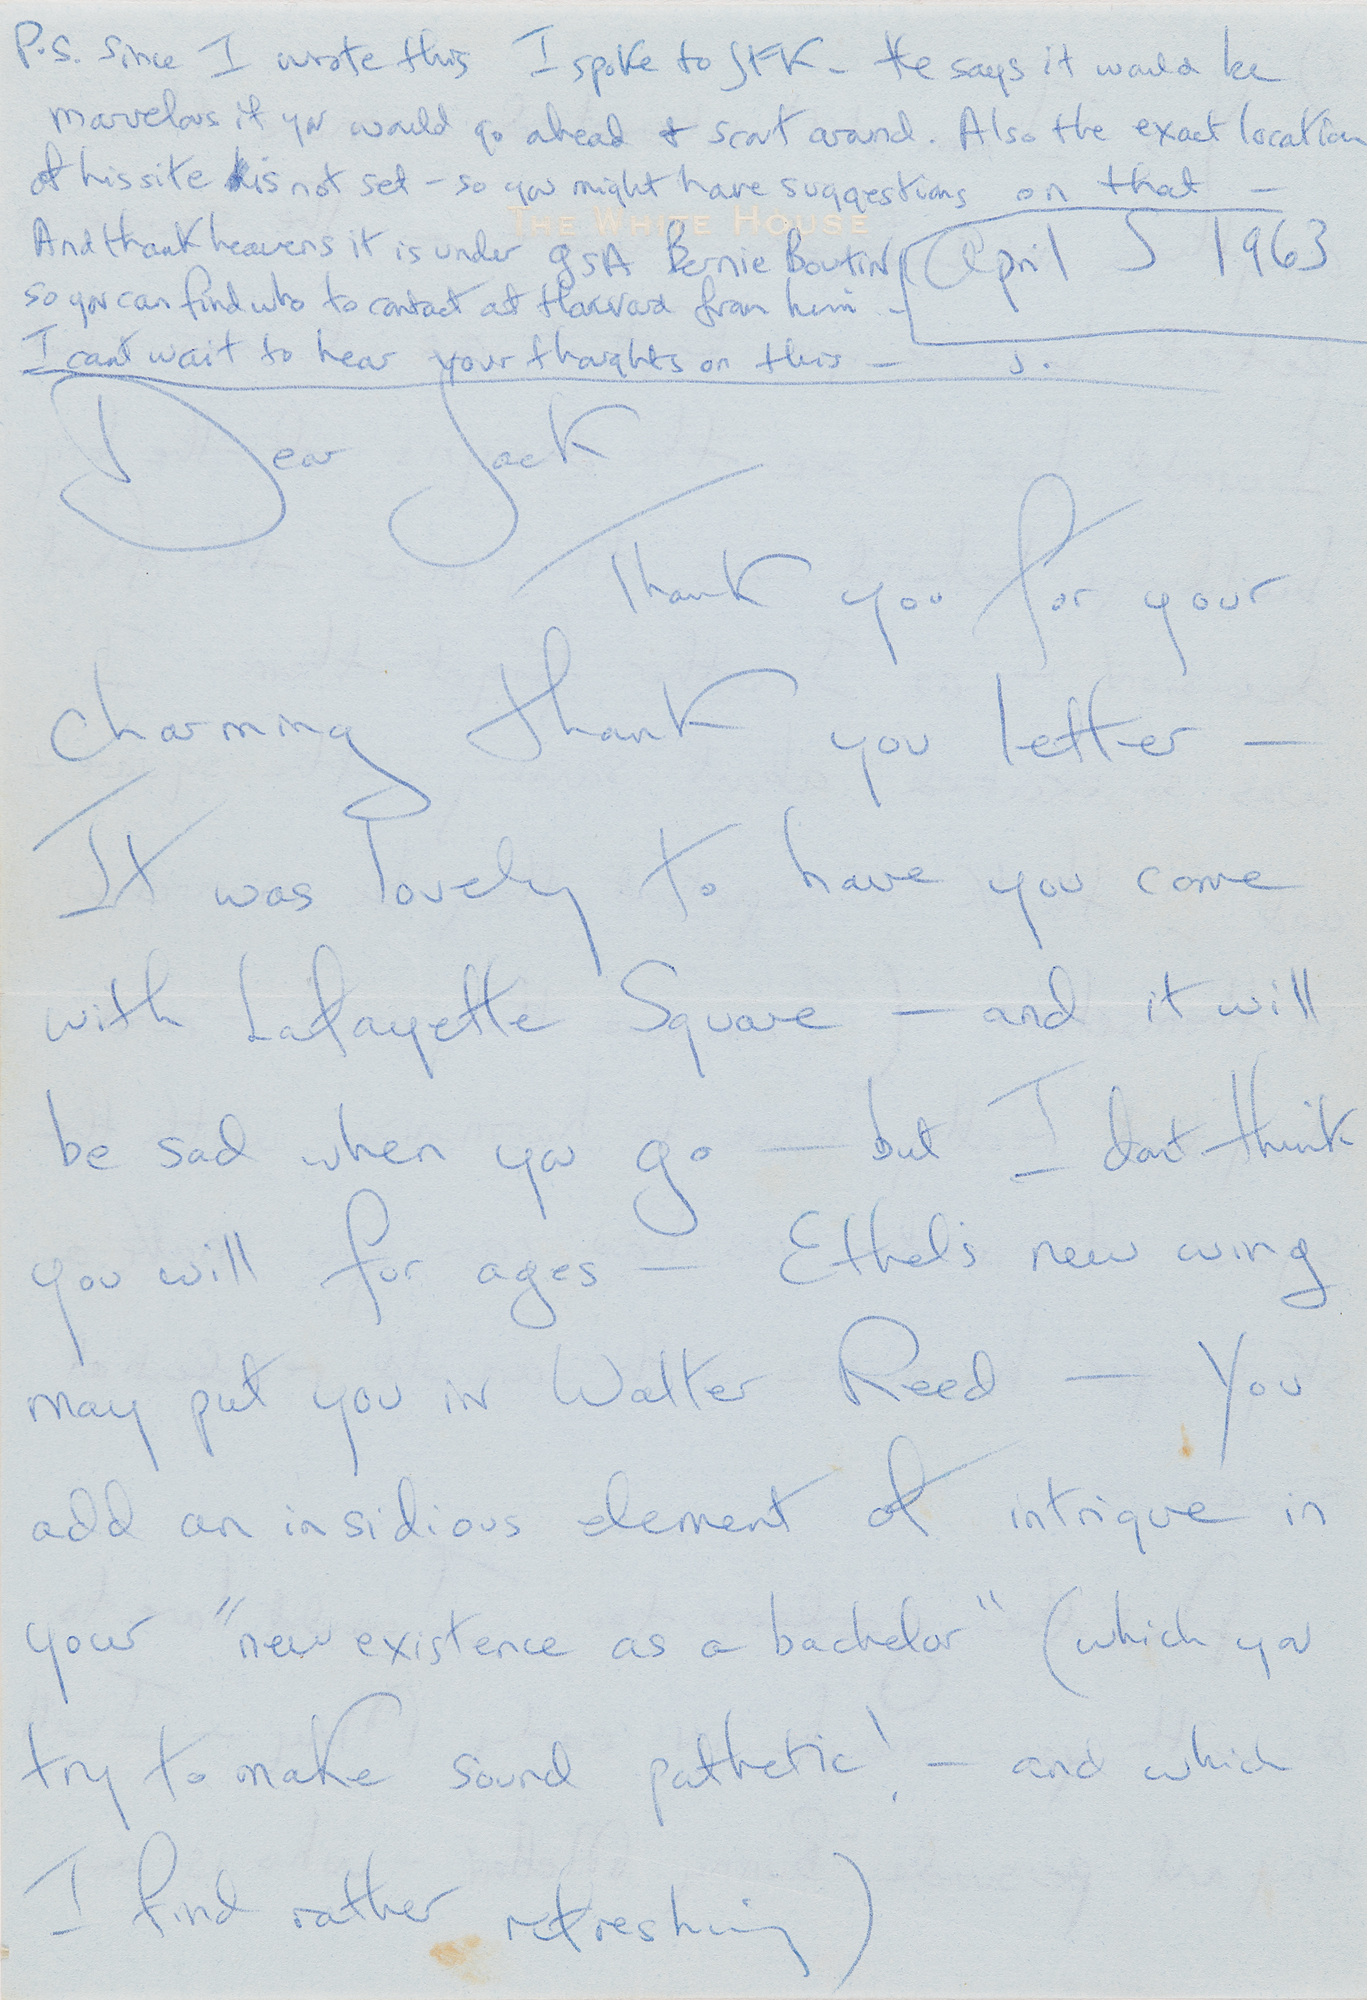 P.S. Since I wrote this I spoke to JFK - He says it would be
marvelous if you would go ahead & scout around. Also the exact location
of his site is not set - so you might have suggestions on that -
THE WHITE HOUSE
And thank heavens it is under GSA Bernie Boutin
so you can find who to contact at Harvard from him -
I cant wait to hear your thoughts on this - J.
April 5 1963
Dear Jack
Thank you for your
charming thank you letter -
It was lovely to have you come
with Lafayette Square - and it will
be sad when you go - but I dont think
you will for ages - Ethel's new wing
may put you in Walter Reed - You
add an insidious element of intrigue in
your "new existence as a bachelor" (which you
try to make sound pathetic! - and which
I find rather refreshing)